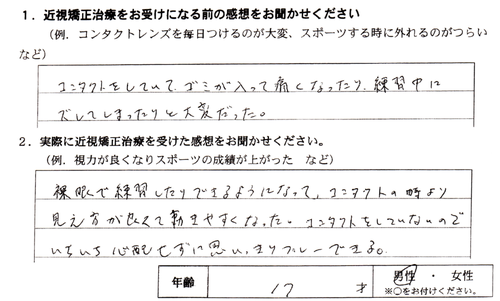 1．近視矯正治療をお受けになる前の感想をお聞かせください
（例．コンタクトレンズを毎日つけるのが大変、スポーツする時に外れるのがつらい
など）
コンタクトをしていて、ゴミが入って痛くなったり、練習中に
ズレてしまったりと大変だった。
2．実際に近視矯正治療を受けた感想をお聞かせください。
（例．視力が良くなりスポーツの成績が上がった　など）
裸眼で練習したりできるようになって、コンタクトの時より
見え方が良くて動きやすくなった。コンタクトをしていないので
いちいち心配せずに思いっきりプレーできる。
年齢　17　才　男性　・　女性
※○をお付けください。